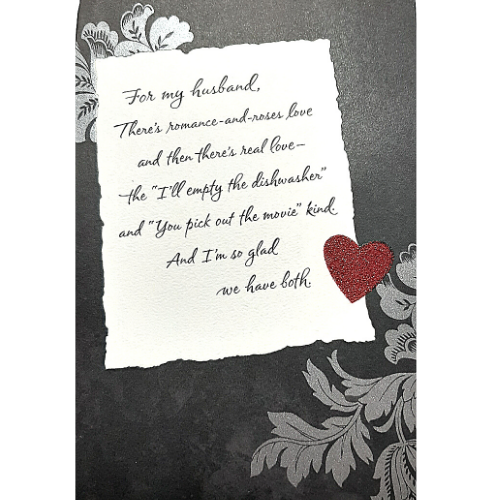 For my husband,
There's romance-and-roses love
and then there's real love—
the "I'll empty the dishwasher"
and "You pick out the movie" kind.
And I'm so glad
we have both.